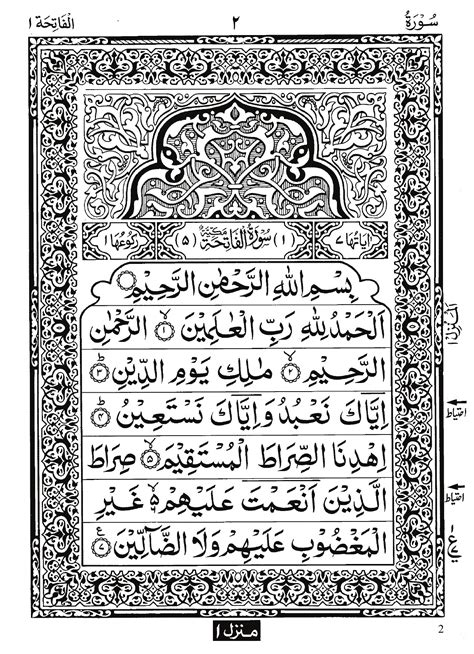 سُوْرَةُ ٢ الْفَاتِحَة ١
اٰيَاتُهَا ٧ (١) سُوْرَةُ الْفَاتِحَةِ مَكِّيَّةٌ (٥) رُكُوْعُهَا ١
بِسْمِ اللهِ الرَّحْمٰنِ الرَّحِيْمِ
اَلْحَمْدُ لِلّٰهِ رَبِّ الْعٰلَمِيْنَ ۙ﴿١﴾ الرَّحْمٰنِ
الرَّحِيْمِ ۙ﴿٢﴾ مٰلِكِ يَوْمِ الدِّيْنِ ؕ﴿٣﴾
اِيَّاكَ نَعْبُدُ وَاِيَّاكَ نَسْتَعِيْنُ ؕ﴿٤﴾
اِهْدِنَا الصِّرَاطَ الْمُسْتَقِيْمَ ۙ﴿٥﴾ صِرَاطَ
الَّذِيْنَ اَنْعَمْتَ عَلَيْهِمْ ۙ۬ غَيْرِ
الْمَغْضُوْبِ عَلَيْهِمْ وَلَا الضَّآلِّيْنَ ﴿٧﴾
اَلْمَنْزِل ١
احتیاط
احتیاط
منزل ١
2